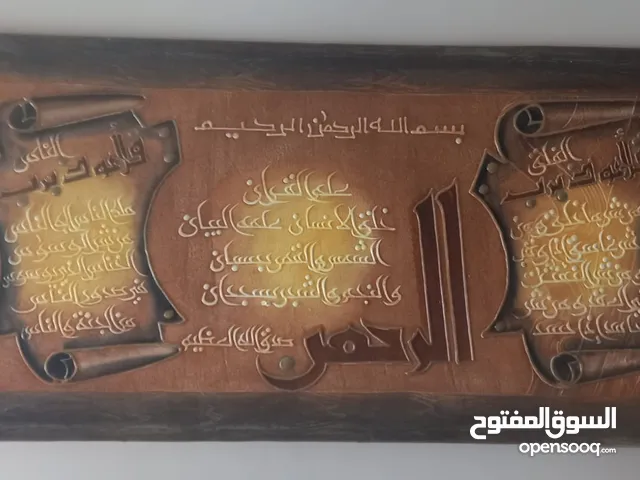 بسم الله الرحمن الرحيم
الرحمن
علم القرآن
خلق الإنسان علمه البيان
الشمس والقمر بحسبان
والنجم والشجر يسجدان
صدق الله العظيم
قل أعوذ برب
الفلق
من شر ما خلق ومن
شر غاسق إذا وقب
ومن شر
قل أعوذ برب
الناس
ملك الناس إله الناس
من شر الوسواس
الخناس الذي يوسوس
في صدور الناس
من الجنة والناس
السوق المفتوح
opensooq.com